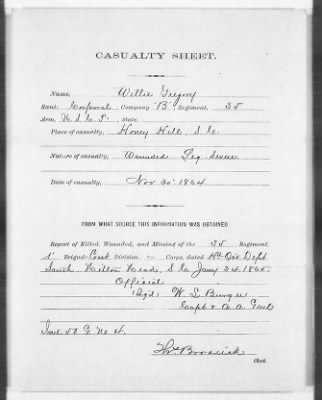 CASUALTY SHEET.
Name, Willie Gregory
Rank, Corporal, Company "B", Regiment, 35
Arm, U.S.C.T. State,
Place of casualty, Honey Hill, S.C.
Nature of casualty, Wounded Leg Severe
Date of casualty, Nov 30" 1864
FROM WHAT SOURCE THIS INFORMATION WAS OBTAINED
Report of Killed, Wounded, and Missing of the 35 Regiment,
1" Brigade Division — Corps, dated
South, Hilton Head, S.C. Jany 24, 1865.
Official
W. L. Burger
Capt & A. A. Genl
Clerk.